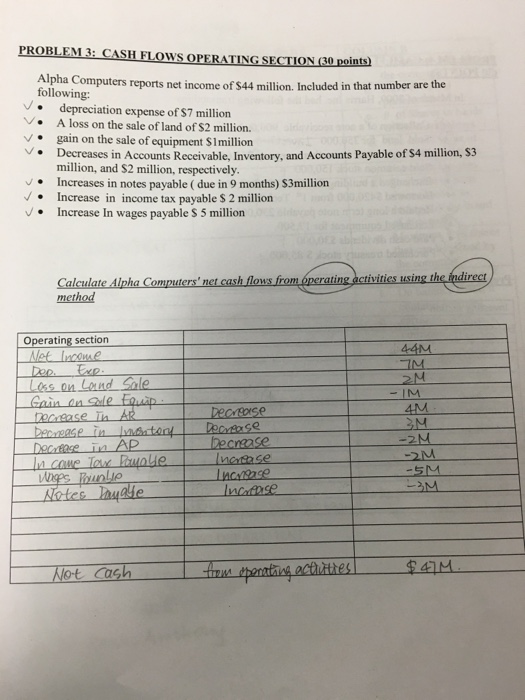 PROBLEM 3: CASH FLOWS OPERATING SECTION (30 points)
Alpha Computers reports net income of $44 million. Included in that number are the
following:
✓ • depreciation expense of $7 million
✓ • A loss on the sale of land of $2 million.
✓ • gain on the sale of equipment $1million
✓ • Decreases in Accounts Receivable, Inventory, and Accounts Payable of $4 million, $3
million, and $2 million, respectively.
✓ • Increases in notes payable ( due in 9 months) $3million
✓ • Increase in income tax payable $ 2 million
✓ • Increase In wages payable $ 5 million
Calculate Alpha Computers' net cash flows from operating activities using the indirect
method
Operating section
Net Income 44M
Dep. Exp. 7M
Loss on Land Sale 2M
Gain on Sale Equip. -1M
Decrease In AR Decrease 4M
Decrease in Inventory Decrease 3M
Decrease in AP Decrease -2M
In come Tax Payable Increase -2M
Wages Payable Increase -5M
Notes Payable Increase -3M
Net cash from operating activities $47M.